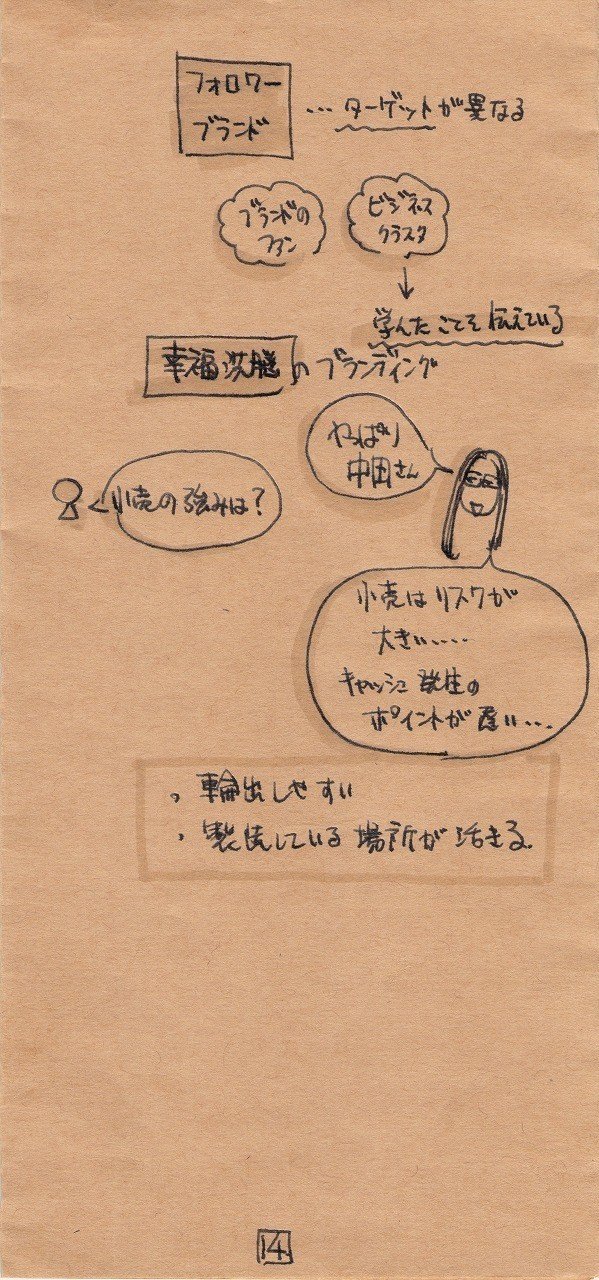 フォロワー
ブランド
… ターゲットが異なる
ブランドの
ファン
ビジネス
クラスタ
学んだことを伝えている
幸福洗脳のブランディング
やっぱり
中田さん
小売の強みは?
小売はリスクが
大きい……
キャッシュ発生の
ポイントが遅い…
・輸出しやすい
・製造している場所が活きる
14